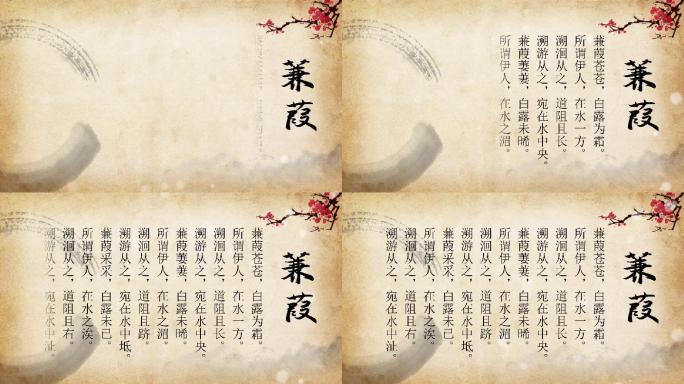 蒹葭
蒹葭
蒹葭苍苍，白露为霜。
所谓伊人，在水一方。
溯洄从之，道阻且长。
溯游从之，宛在水中央。
蒹葭萋萋，白露未晞。
所谓伊人，在水之湄。
蒹葭
蒹葭苍苍，白露为霜。
所谓伊人，在水一方。
溯洄从之，道阻且长。
溯游从之，宛在水中央。
蒹葭萋萋，白露未晞。
所谓伊人，在水之湄。
溯洄从之，道阻且跻。
溯游从之，宛在水中坻。
蒹葭采采，白露未已。
所谓伊人，在水之涘。
溯洄从之，道阻且右。
溯游从之，宛在水中沚。
蒹葭
蒹葭苍苍，白露为霜。
所谓伊人，在水一方。
溯洄从之，道阻且长。
溯游从之，宛在水中央。
蒹葭萋萋，白露未晞。
所谓伊人，在水之湄。
溯洄从之，道阻且跻。
溯游从之，宛在水中坻。
蒹葭采采，白露未已。
所谓伊人，在水之涘。
溯洄从之，道阻且右。
溯游从之，宛在水中沚。